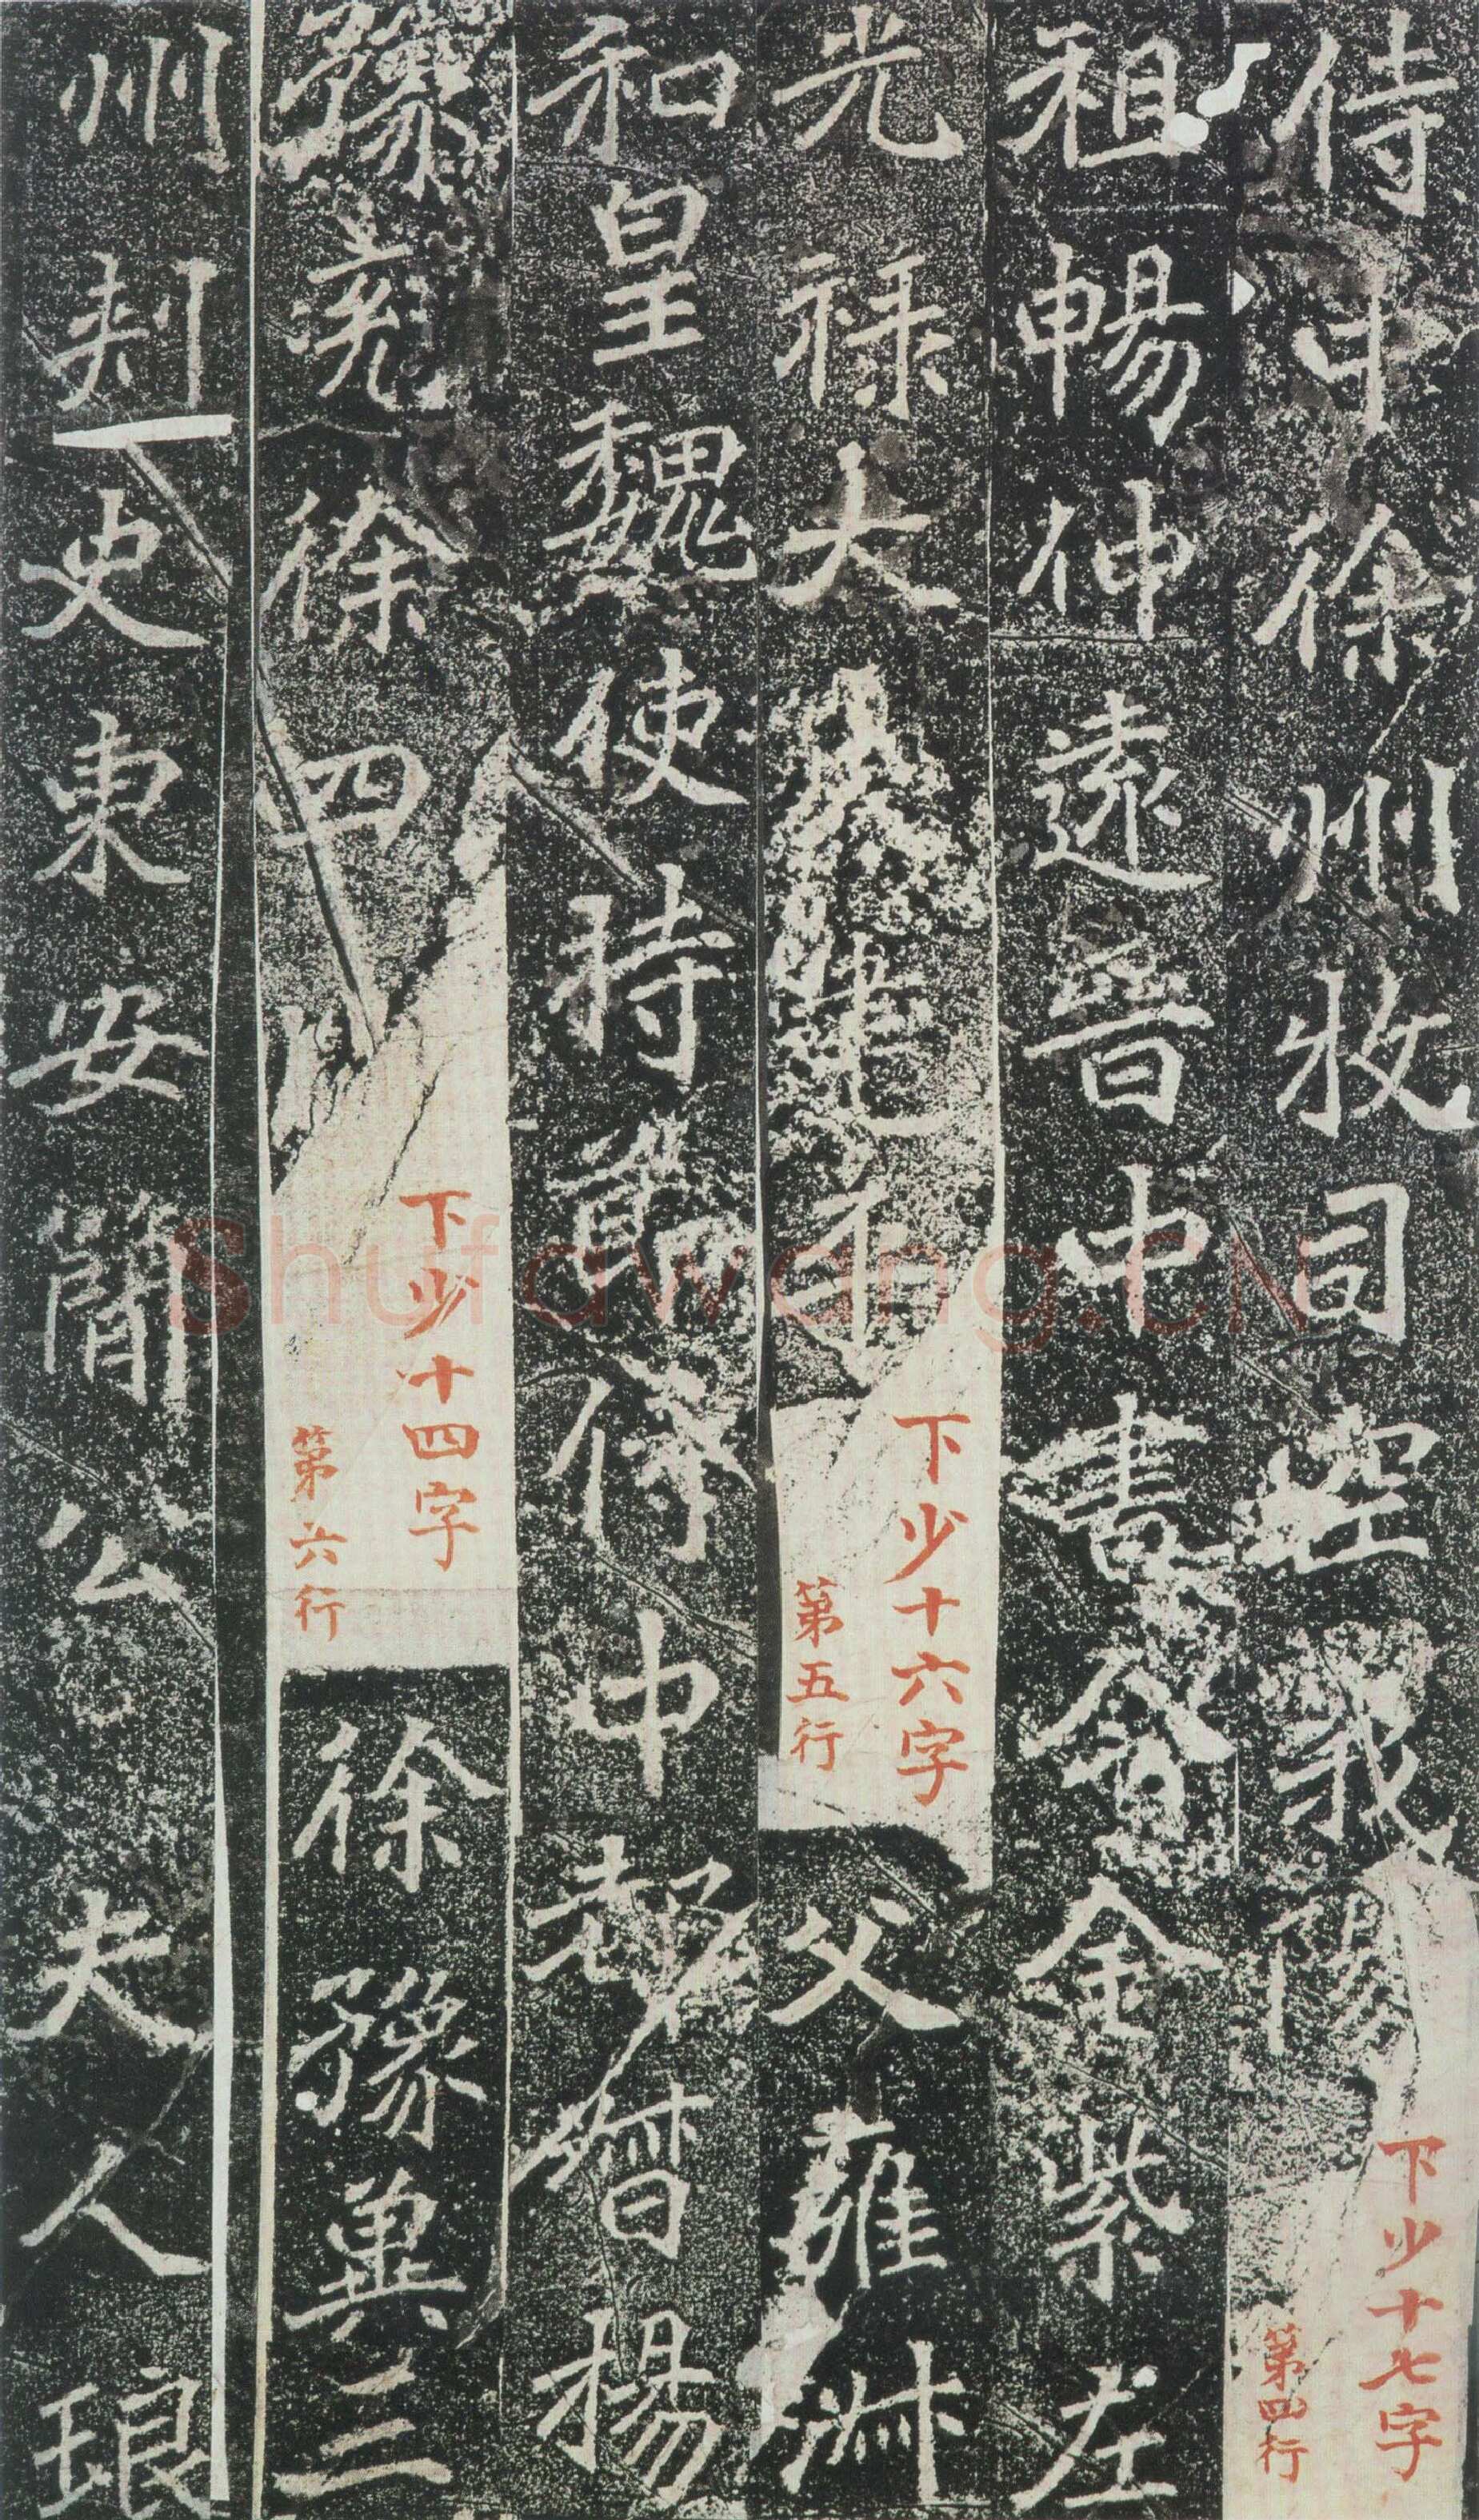 侍中徐州牧司空義陽
下少十七字
第四行
祖暢仲遠晉中書令金紫左
光祿大夫建平
下少十六字
第五行
父雍淑
和皇魏使持節侍中都督揚
豫兗徐四州
下少十四字
第六行
徐豫冀三
州刺史東安簡公夫人琅
Shufawang.CN